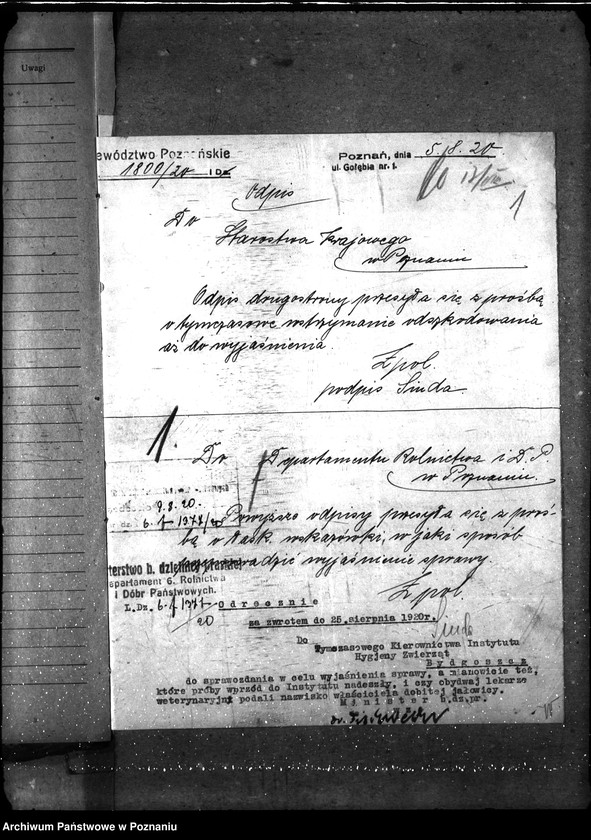 Uwagi
ewództwo Poznańskie
1800/20
Poznań, dnia 5/8. 20.
ul. Gołębia nr. 1.
1
Odpis
Do
Starostwa Krajowego
w Poznaniu
Odpis drugostrony przesyła się z prośbą
o tymczasowe wstrzymanie odszkodowania
aż do wyjaśnienia.
Z pol.
podpis Sinda.
1.
Do Departamentu Rolnictwa i D. P.
w Poznaniu.
9.8.20.
Powyższe odpisy przesyła się z proś-
bą o łask. wskazówki, w jaki sposób
wyjaśnienie sprawy.
Z pol.
Sinda
terstwo b. dzielnicy pruskiej
epartament 6. Rolnictwa
i Dóbr Państwowych.
L. Dz.
20
Odręcznie
za zwrotem do 25 sierpnia 1920r.
Do
Tymczasowego Kierownictwa Instytutu
Hygjeny Zwierząt
Bydgoszcz
do sprawozdania w celu wyjaśnienia sprawy, a mianowicie też,
które próby wprzód do Instytutu nadeszły, i czy obydwaj lekarze
weterynaryjni podali nazwisko właściciela dobitej jałowicy.
Minister b.dz.pr.
Archiwum Państwowe w Poznaniu